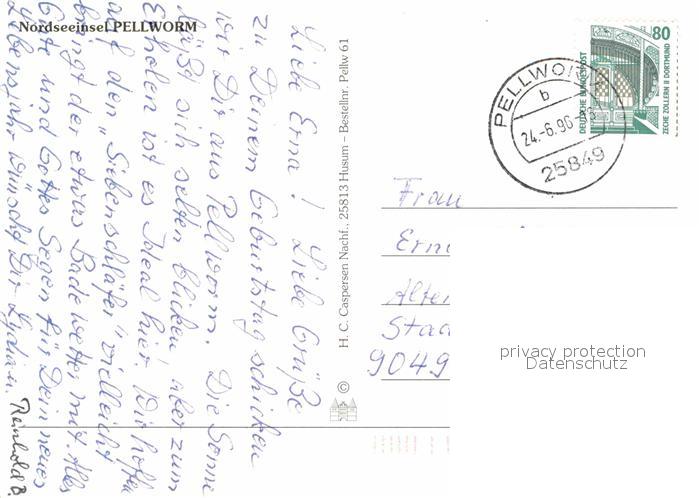 Nordseeinsel PELLWORM
Liebe Erna! Liebe Grüße
zu Deinem Geburtstag schicken
wir Dir aus Pellworm. Die Sonne
läßt sich selten blicken aber zum
Erholen ist es Ideal hier. Wir hoffen
auf den „Siebenschläfer" vielleicht
bringt der etwas Badewetter mit. Alles
Gute und Gottes Segen für Dein neues
Lebensjahr wünscht Dir Lydia u.
Reinhold B
H. C. Caspersen Nachf., 25813 Husum – Bestellnr. Pellw 61
©
80
DEUTSCHE BUNDESPOST
ZECHE ZOLLERN II DORTMUND
PELLWORM
b
24.-6.96
25849
Frau
Ern
Alten
Staa
9049
privacy protection
Datenschutz